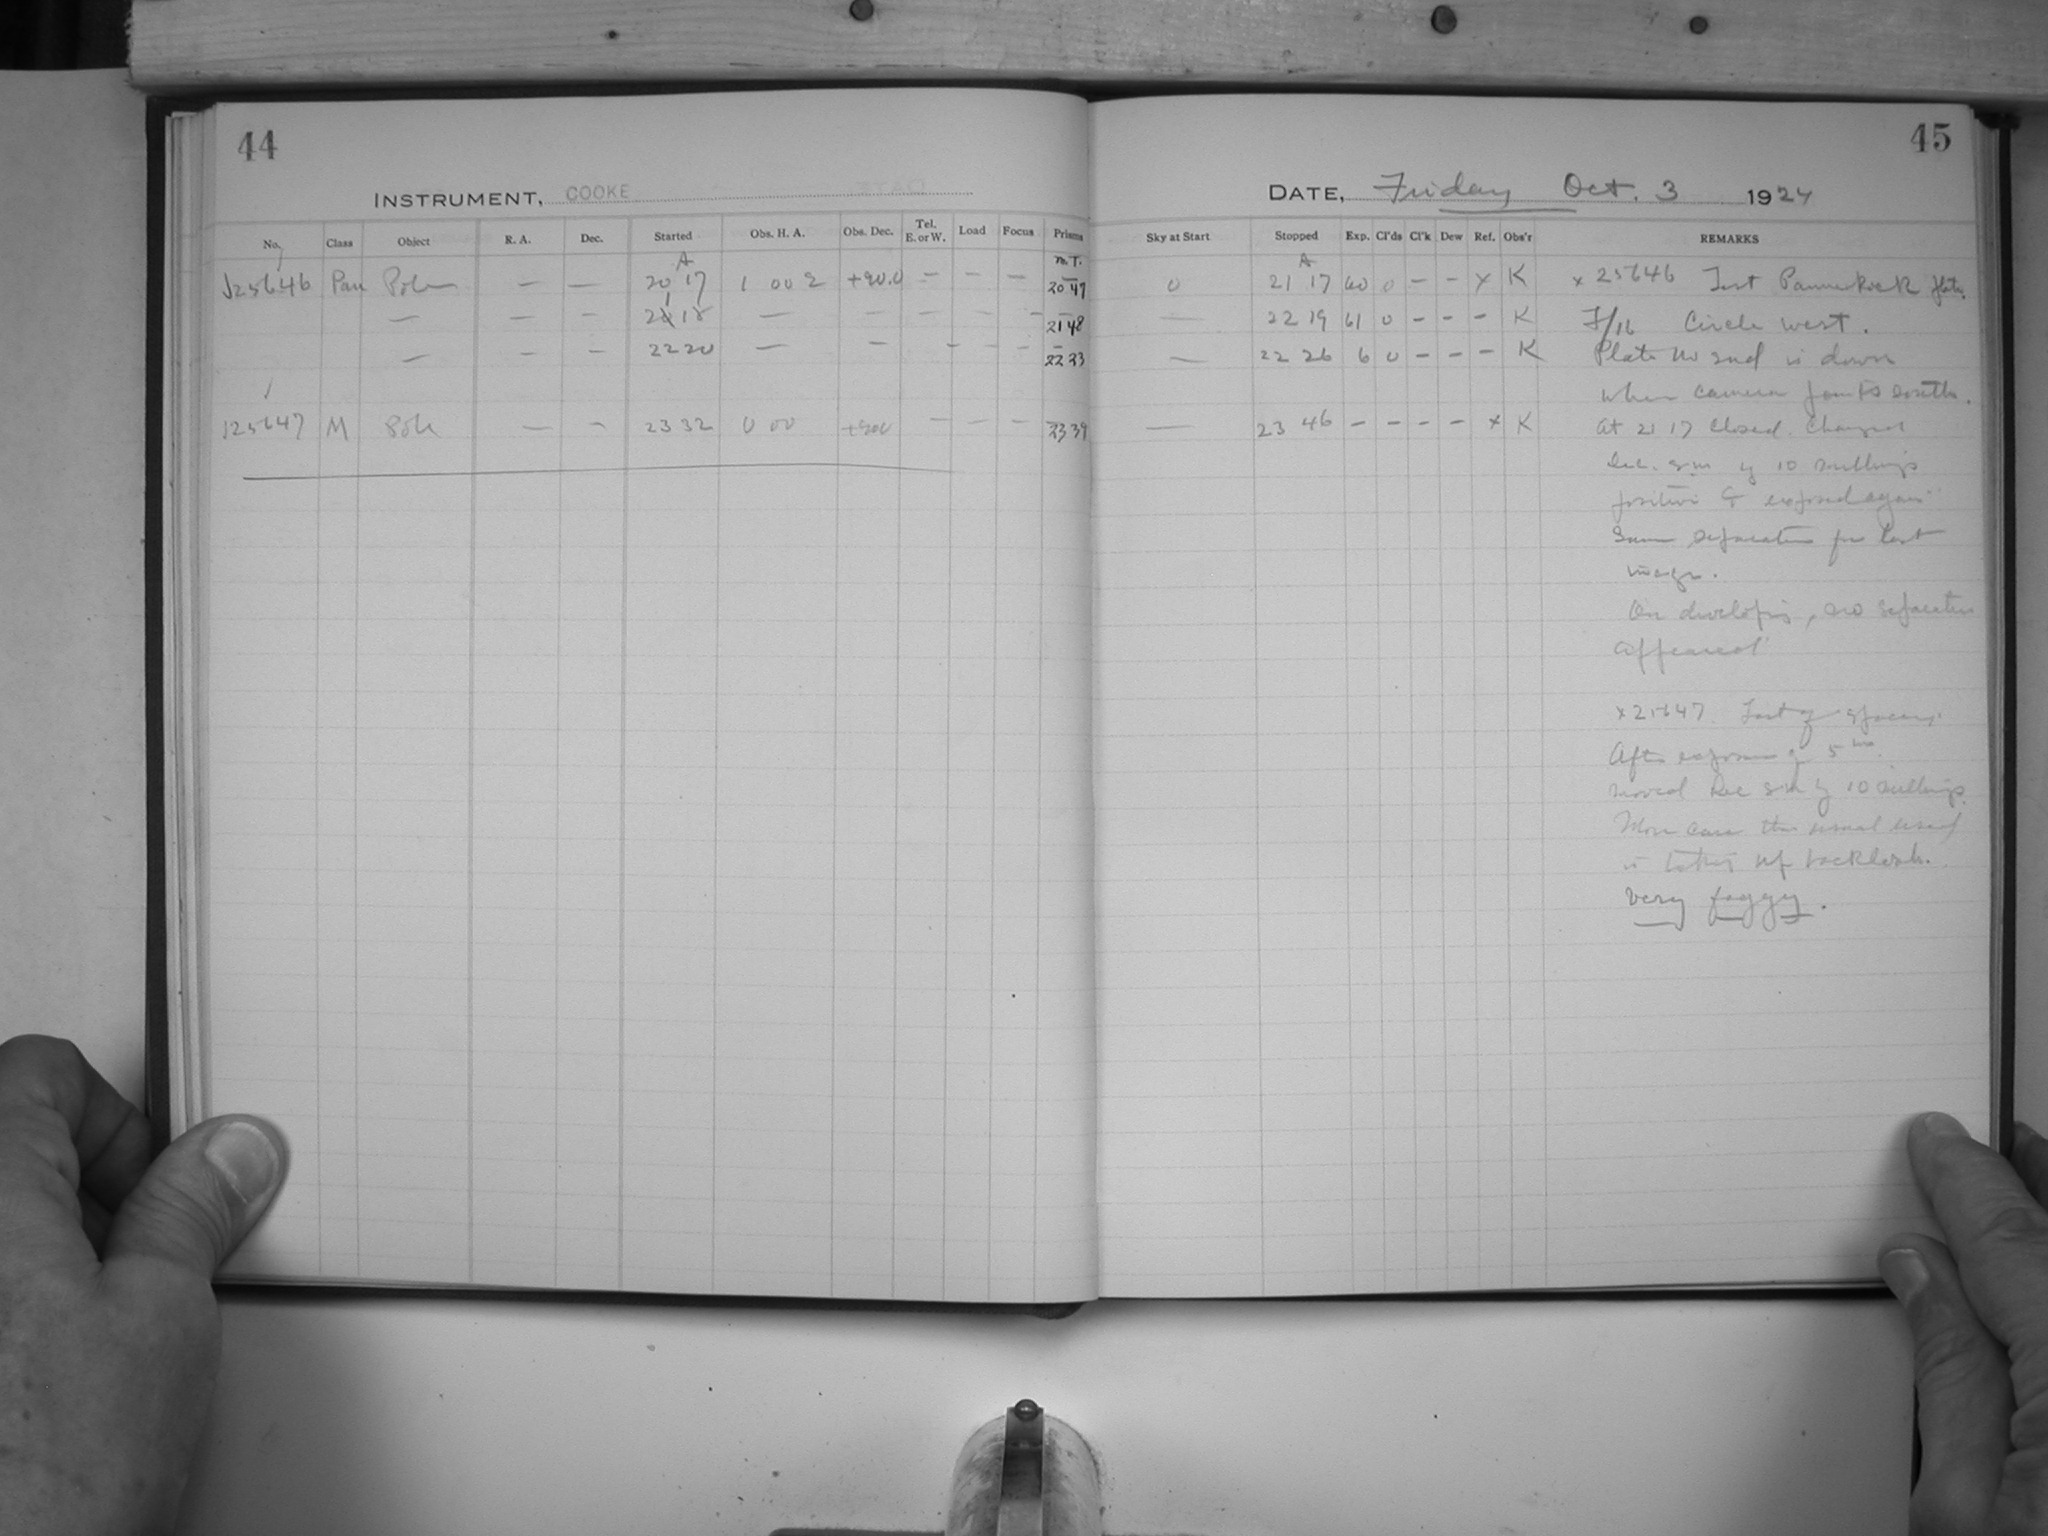 44
INSTRUMENT, COOKE
No. Class Object R. A. Dec. Started Obs. H. A. Obs. Dec. Tel. E. or W. Load Focus Prisms
A M.T.
25646 Pan Pole — — 20 17 1 00 2 +90.0 — — — 20 47
— — — 21 18 — — — — — 21 48
— — — 22 20 — — — — — 22 23
25647 M Pole — — 23 32 0 00 +90.0 — — — 23 39
45
DATE, Friday Oct. 3 1924
Sky at Start Stopped Exp. Cl'ds Cl'k Dew Ref. Obs'r REMARKS
A
0 21 17 60 0 – – x K x 25646 Test Pannekoek plate.
— 22 19 61 0 – – – K F/16 Circle west.
— 22 26 6 0 – – – K Plate no end is down
when camera points south.
— 23 46 – – – – x K At 21 17 closed. Changed
Dec. by 10
positive & exposed again
Same separation for last
image.
On developing, no separation
appeared
x 25647. Test of spacing.
After exposure of 5 m
moved Dec by 10
More care than usual used
in taking up backlash.
Very foggy.